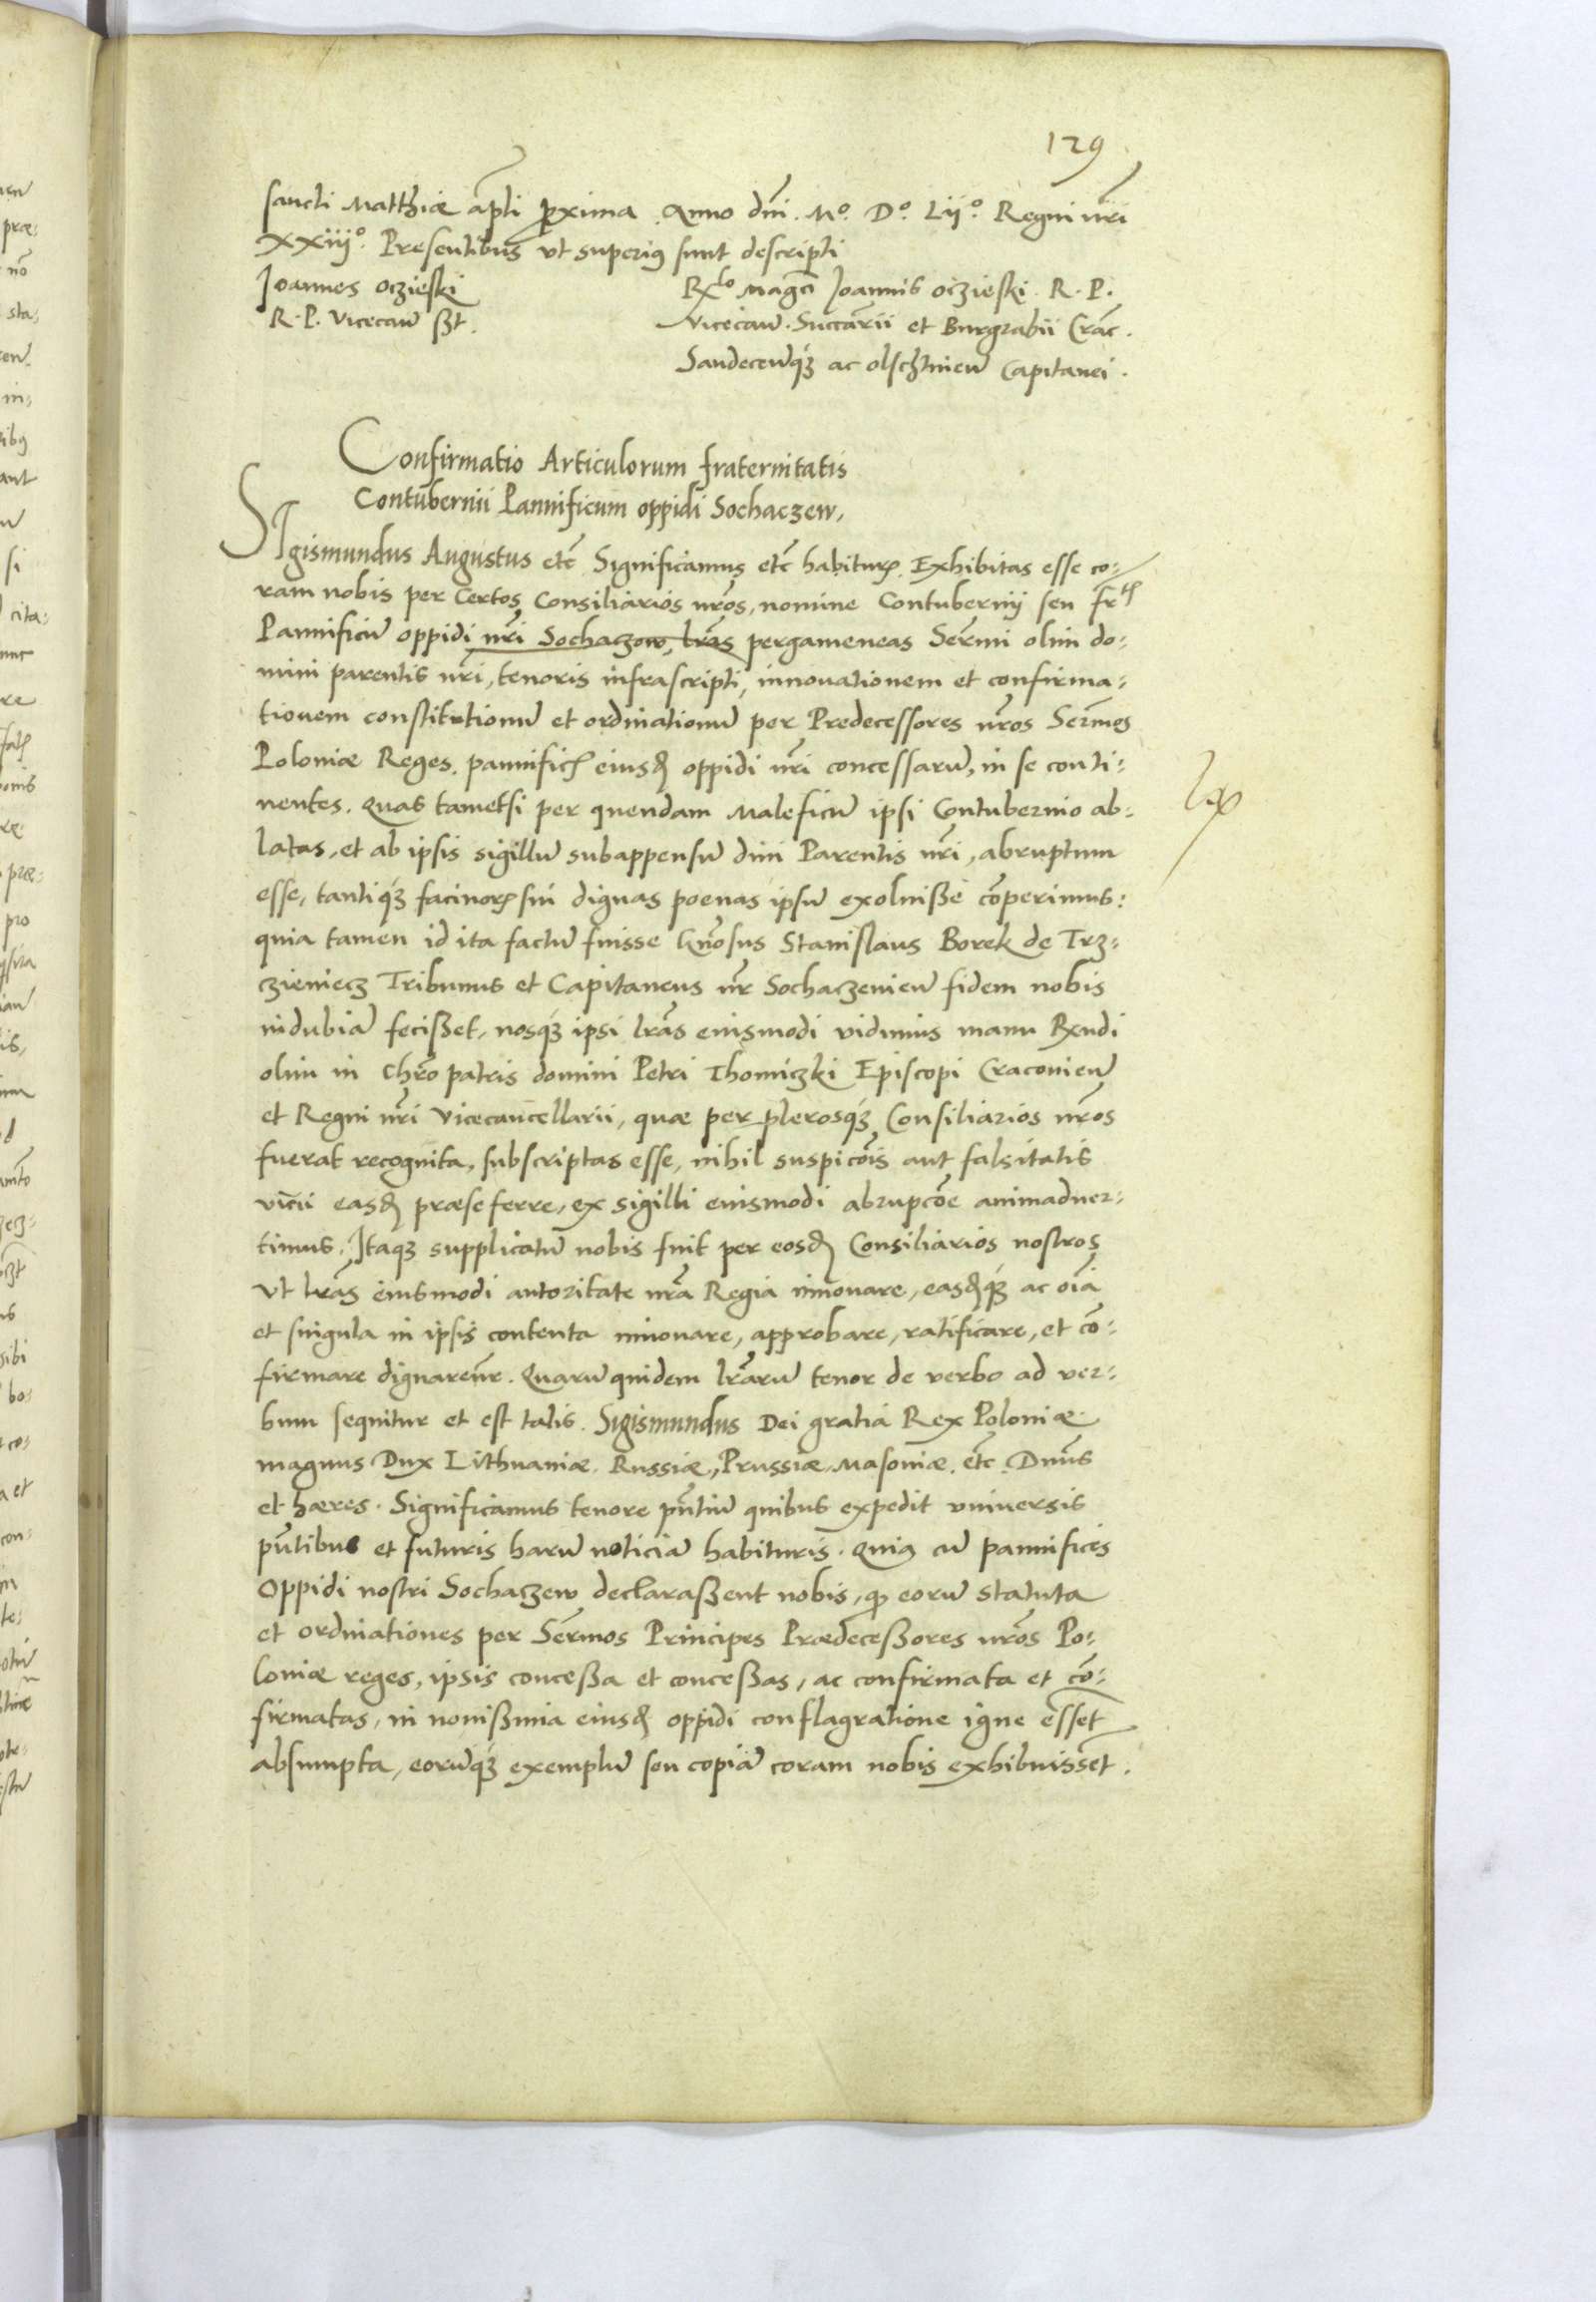 129
sancti Matthiæ apłi pxima. Anno dni. Mº. Dº. Lijº. Regni nri
XXiijº. Presentibus vt superiq sunt descripti
Joannes oczieski
R. P. Vicecan ßt.
Rlo Magci Joannis oczieski. R. P.
Vicecan. Succarii et Burgrabii Crac.
Sandecenqȝ ac olschtinen Capitanei.
Confirmatio Articulorum fraternitatis
Contubernii Pannificum oppidi Sochaczew,
SIgismundus Augustus etc Significamus etc habiturꝭ. Exhibitas esse co-
ram nobis per Certos Consiliarios nros, nomine Contubernij seu
Pannificū oppidi nri Sochaczow, lras pergameneas Sermi olim do-
mini parentis nri, tenoris infrascripti, innouationem et confirma-
tionem constitutionū et ordinationū per Predecessores nros Sermos
Poloniæ Reges, pannificꝭ eiusd oppidi nri concessarū, in se conti-
nentes. Quas tametsi per quendam Maleficū ipsi Contubernio ab-
latas, et ab ipsis sigillū subappensū dini Parentis nri, abruptum
esse, tantiqȝ facinorꝭ sui dignas poenas ipsū exoluiße cōperimus:
quia tamen id ita factū fuisse Gnosus Stanislaus Borek de Trz-
czieniecz Tribunus et Capitaneus nr Sochaczenien fidem nobis
indubiā fecißet, nosqȝ ipsi lras eiusmodi vidimus manu Rndi
olim in Chro patris domini Petri Thomiczki Episcopi Craconien
et Regni nri Vicecancellarii, quæ per plerosqȝ Consiliarios nros
fuerat recognita, subscriptas esse, nihil suspicois aut falsitatis
vicii easd præse ferre, ex sigilli eiusmodi abrupcoe animaduer-
timus. Itaqȝ supplicatū nobis fuit per eosd Consiliarios nostros
Vt lras eiusmodi autoritate nra Regia innouare, easdqȝ ac oia
et singula in ipsis contenta innouare, approbare, ratificare, et cō-
firmare dignaremr. Quarū quidem lrarū tenor de verbo ad ver-
bum sequitur et est talis. Sigismundus Dei gratia Rex Poloniæ
magnus Dux Lithuaniæ, Russiæ, Prussiæ, Masoniæ. etc. Dnus
et hæres. Significamus tenore pntiū quibus expedit vniuersis
pntibus et futuris harū noticiā habituris. Quia cū pannifices
Oppidi nostri Sochaczew declaraßent nobis, qꝫ eorū statuta
et ordinationes per Sermos Principes Prædeceßores nros Po-
loniæ reges, ipsis conceßa et conceßas, ac confirmata et cō-
firmatas, in nouißima eiusd oppidi conflagratione igne essēt
absumpta, eorūqȝ exemplū seu copiā coram nobis exhibuissēt.